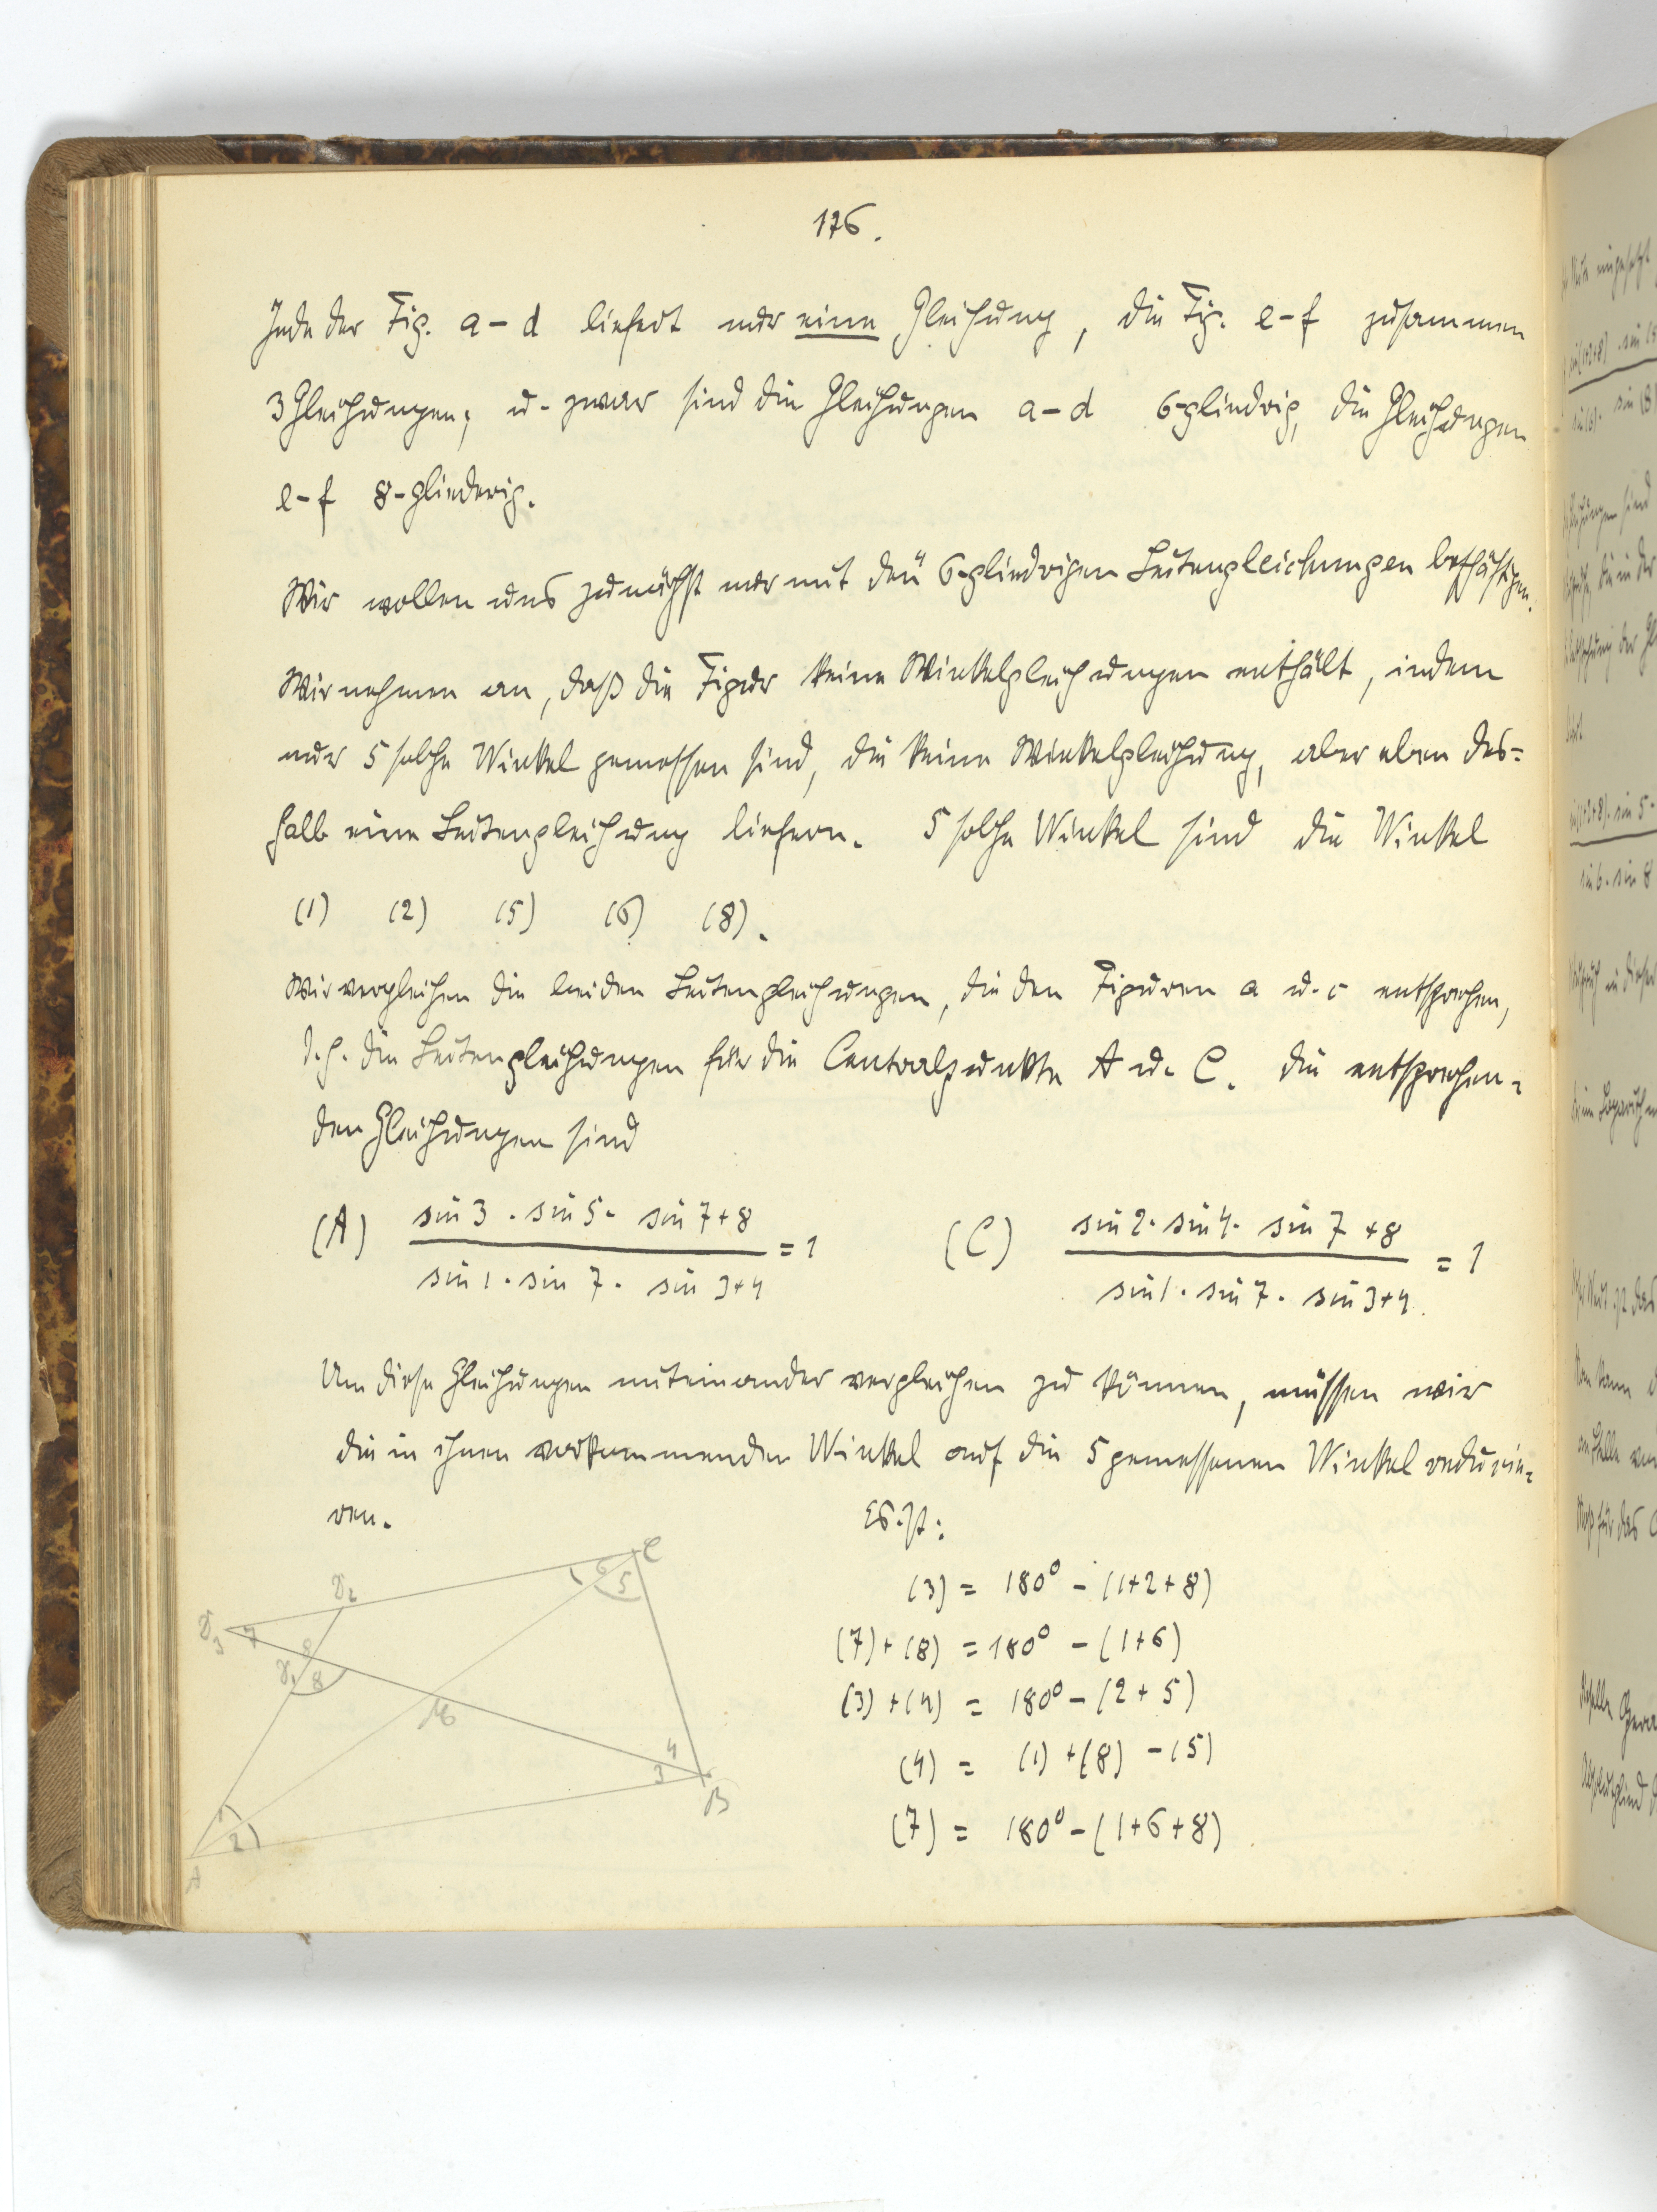 176.
Jede der Fig. a-d liefert nur eine Gleichung, die Fig. e-f zusammen
3 Gleichungen; u. zwar sind die Gleichungen a-d 6-gliedrig, die Gleichungen
e-f 8-gliederig.
Wir wollen uns zunächst nur mit den 6-gliedrigen Seitengleichungen beschäftigen.
Wir nehmen an, daß die Figur keine Winkelgleichungen enthält, indem
nur 5 solche Winkel gemessen sind, die keine Winkelgleichung, aber eben des=
halb eine Seitengleichung liefern. 5 solche Winkel sind die Winkel
(1) (2) (5) (6) (8).
Wir vergleichen die beiden Seitengleichungen, die den Figuren a u. c entsprechen,
d.h. die Seitengleichungen für die Centralpunkte A u. C. Die entsprechen=
den Gleichungen sind
(A) sin 3 . sin 5 . sin 7+8 / sin 1 . sin 7 . sin 3+4 = 1 (C) sin 2 . sin 4 . sin 7+8 / sin 1 . sin 7 . sin 3+4. = 1
Um diese Gleichungen miteinander vergleichen zu können, müssen wir
die in ihnen vorkommenden Winkel auf die 5 gemessenen Winkel reducie=
ren. Es ist:
(3) = 180° - (1+2+8)
(7) + (8) = 180° - (1+6)
(3) + (4) = 180° - (2+5)
(4) = (1) + (8) - (5)
(7) = 180° - (1+6+8)
C
6
5
7
8
8
4
3
B
1
2
A